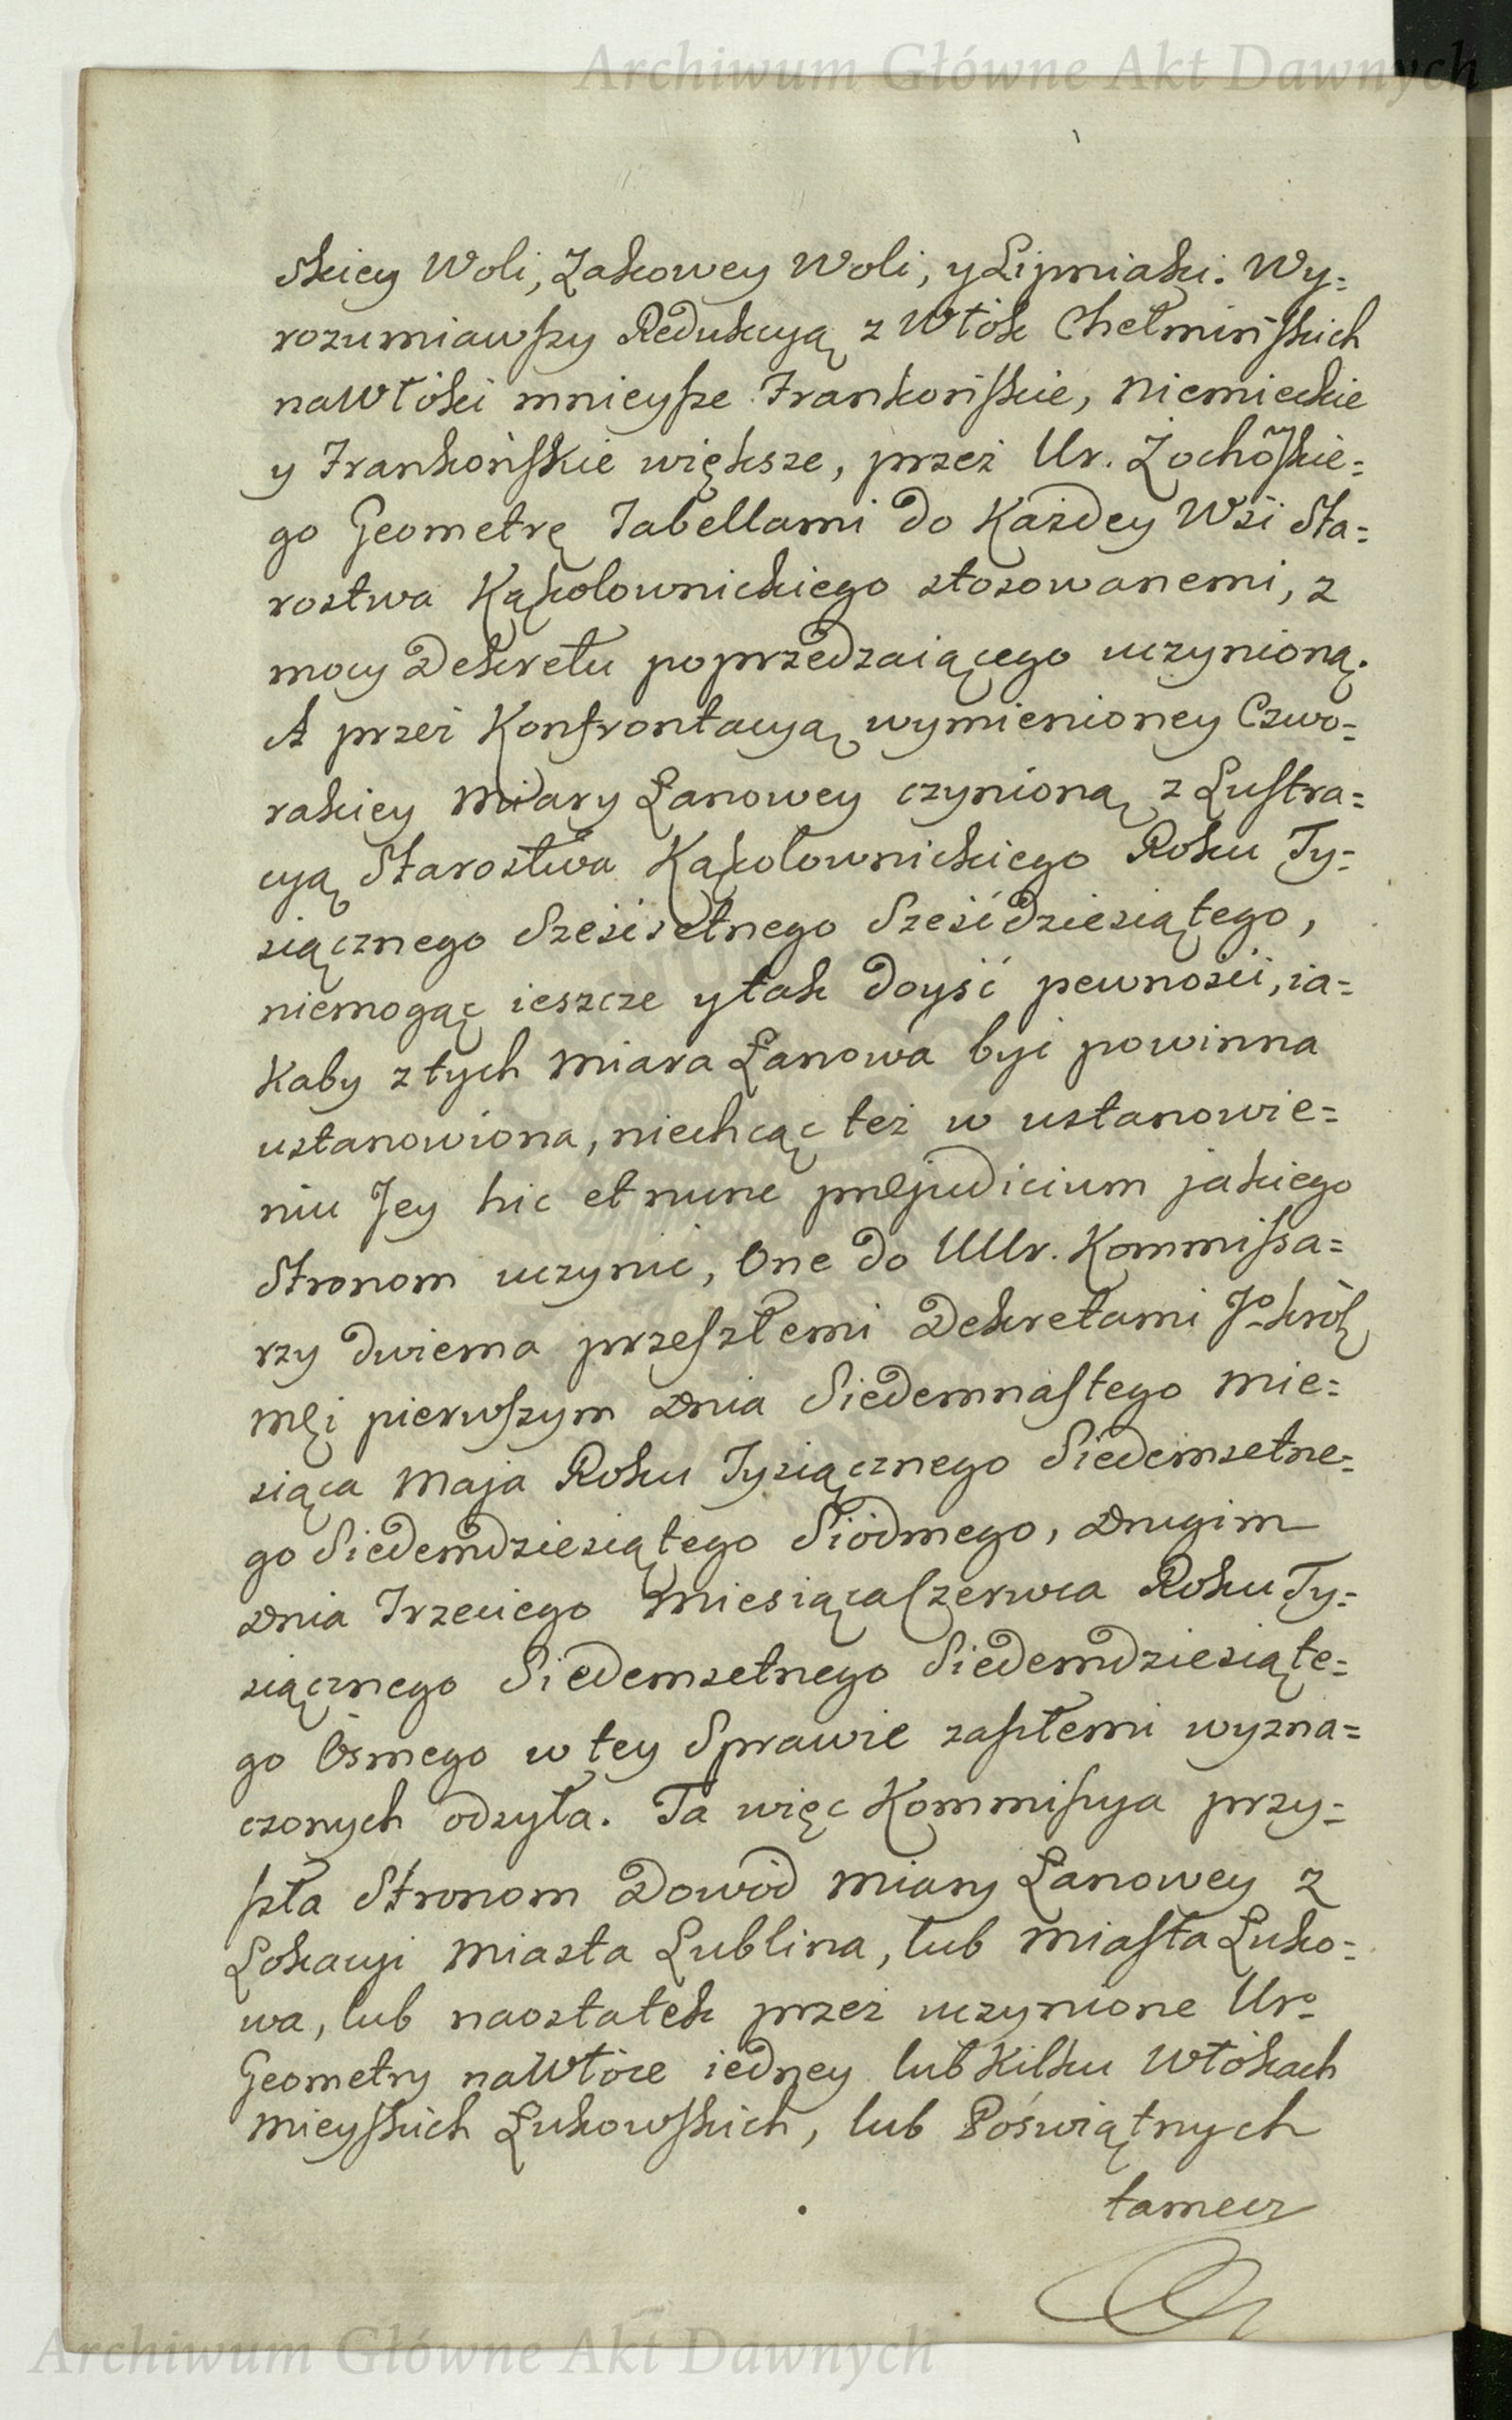 Archiwum Główne Akt Dawnych
skiey Woli, Zakowey Woli, y Lipniaki. Wy=
rozumiawszy Redukcyą z Włók Chełmińskich
na Włóki mnieysze Frankońskie, Niemieckie
y Frankońskie większe, przez Ur. Żochõskie=
go Geometrę Tabellami do Każdey Wsi Sta=
rostwa Kąkolownickiego stosowanemi, z
mocy Dekretu poprzedzaiącego uczynioną.
A przez Konfrontacyą wymienioney Czwo=
rakiey Miary Łanowey czynioną z Lustra=
cyą Starostwa Kąkolownickiego Roku Ty=
siącznego Sześćsetnego Sześćdziesiątego,
niemogąc ieszcze y tak doyść pewności, ia=
kaby z tych Miara Łanowa być powinna
ustanowiona, niechcąc też w ustanowie=
niu Jey hic et nunc præjudicium jakiego
Stronom uczynić, One do UUr. Kommissa=
rzy dwiema przeszłemi Dekretami Jo Król
Mci pierwszym Dnia Siedemnastego Mie=
siąca Maja Roku Tysiącznego Siedemsetne=
go Siedemdziesiątego Siódmego, Drugim
Dnia Trzeciego Miesiąca Czerwca Roku Ty=
siącznego Siedemsetnego Siedemdziesiąte=
go Ósmego w tey Sprawie zaszłemi wyzna=
czonych odsyła. Ta więc Kommissya przy=
szła Stronom Dowód Miary Łanowey z
Lokacyi Miasta Lublina, lub Miasta Łuko=
wa, lub naostatek przez uczynione Uro
Geometry na Włóce iedney lub Kilku Włókach
Mieyskich Łukowskich, lub Poświątnych
tamecz
Archiwum Główne Akt Dawnych